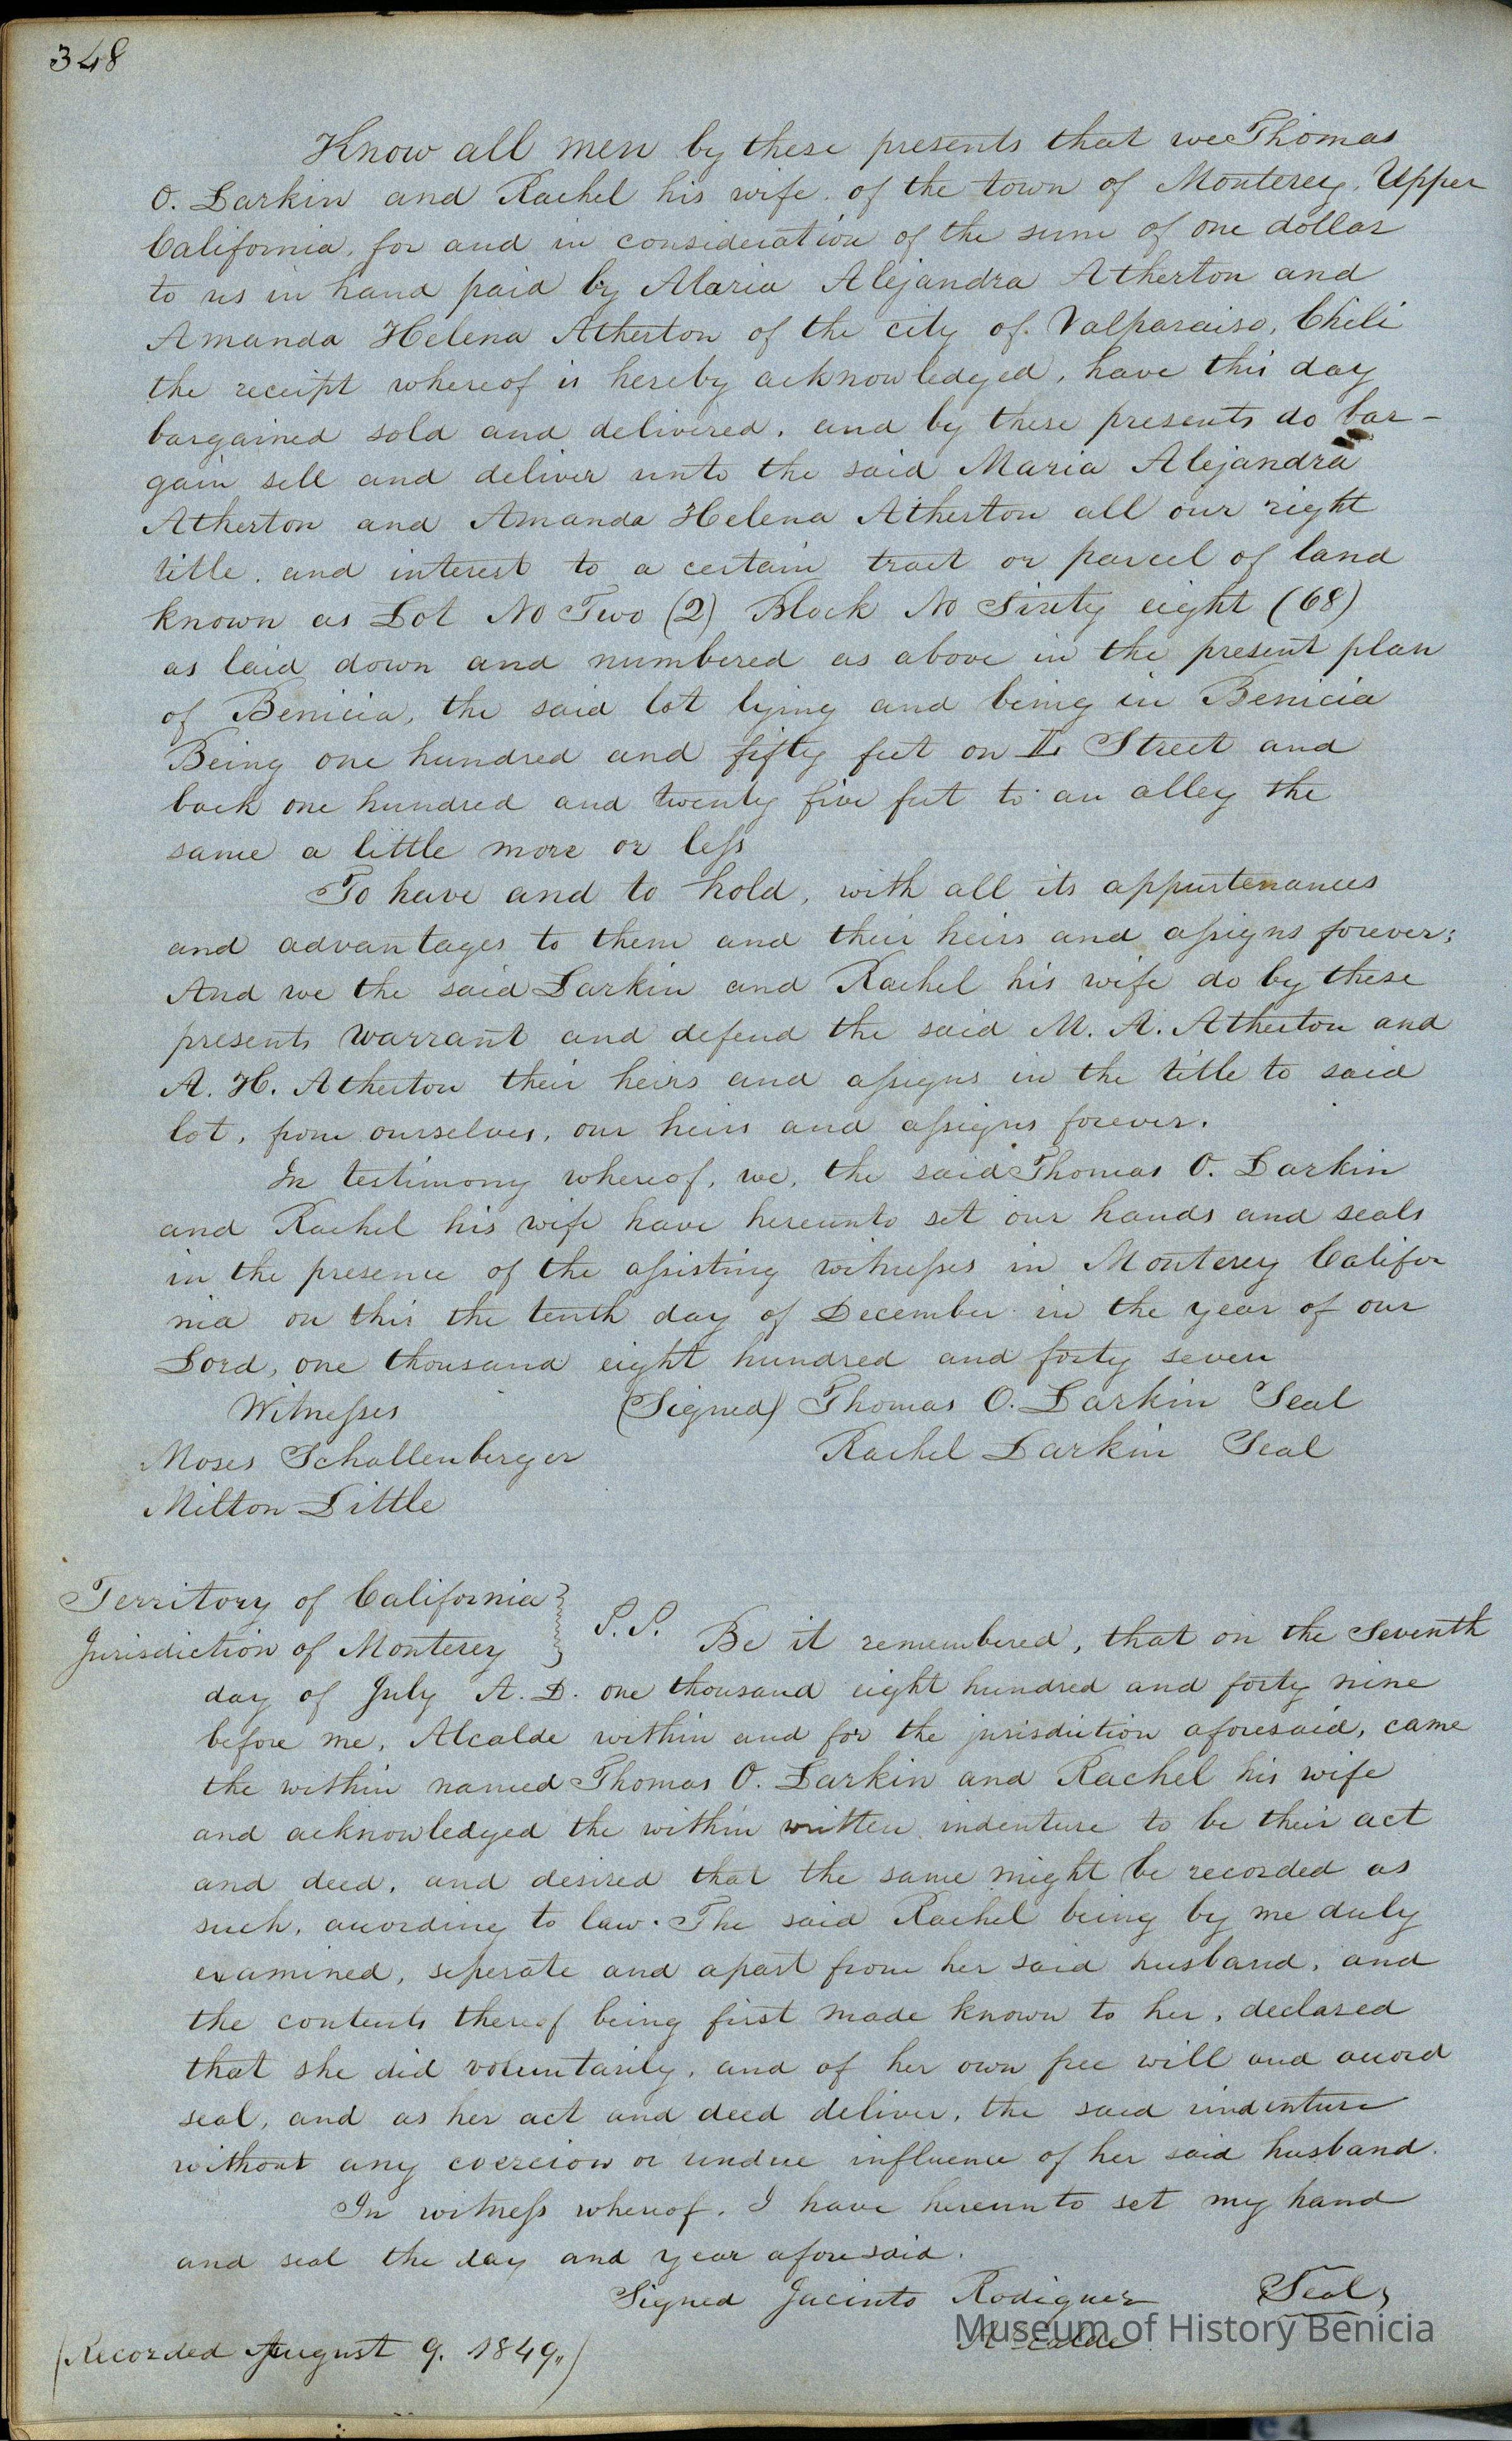 348
Know all men by these presents that we Thomas
O. Larkin and Rachel his wife of the town of Monterey, Upper
California, for and in consideration of the sum of one dollar
to us in hand paid by Maria Alejandra Atherton and
Amanda Helena Atherton of the city of Valparaiso, Chili
the receipt whereof is hereby acknowledged, have this day
bargained sold and delivered, and by these presents do bar-
gain sell and deliver unto the said Maria Alejandra
Atherton and Amanda Helena Atherton all our right
title, and interest to a certain tract or parcel of land
known as Lot No Two (2) Block No Sixty eight (68)
as laid down and numbered as above in the present plan
of Benicia, the said lot lying and being in Benicia
Being one hundred and fifty feet on L Street and
back one hundred and twenty five feet to an alley the
same a little more or less
To have and to hold, with all its appurtenances
and advantages to them and their heirs and assigns forever;
And we the said Larkin and Rachel his wife do by these
presents warrant and defend the said M. A. Atherton and
A. H. Atherton their heirs and assigns in the title to said
lot, from ourselves, our heirs and assigns forever.
In testimony whereof, we, the said Thomas O. Larkin
and Rachel his wife have hereunto set our hands and seals
in the presence of the assisting witnesses in Monterey Califor
nia on this the tenth day of December in the year of our
Lord, one thousand eight hundred and forty seven
Witnesses (Signed) Thomas O. Larkin Seal
Moses Schallenberger Rachel Larkin Seal
Milton Little
Territory of California
Jurisdiction of Monterey } S.S. Be it remembered, that on the Seventh
day of July A. D. one thousand eight hundred and forty nine
before me, Alcalde within and for the jurisdiction aforesaid, came
the within named Thomas O. Larkin and Rachel his wife
and acknowledged the within written indenture to be their act
and deed, and desired that the same might be recorded as
such, according to law. The said Rachel being by me duly
examined, seperate and apart from her said husband, and
the contents thereof being first made known to her, declared
that she did voluntarily, and of her own free will and accord
seal, and as her act and deed deliver, the said indenture
without any coercion or undue influence of her said husband.
In witness whereof, I have hereunto set my hand
and seal the day and year aforesaid.
Signed Jacinto Rodiguez Seal
Alcalde
(Recorded August 9. 1849,,)
Museum of History Benicia